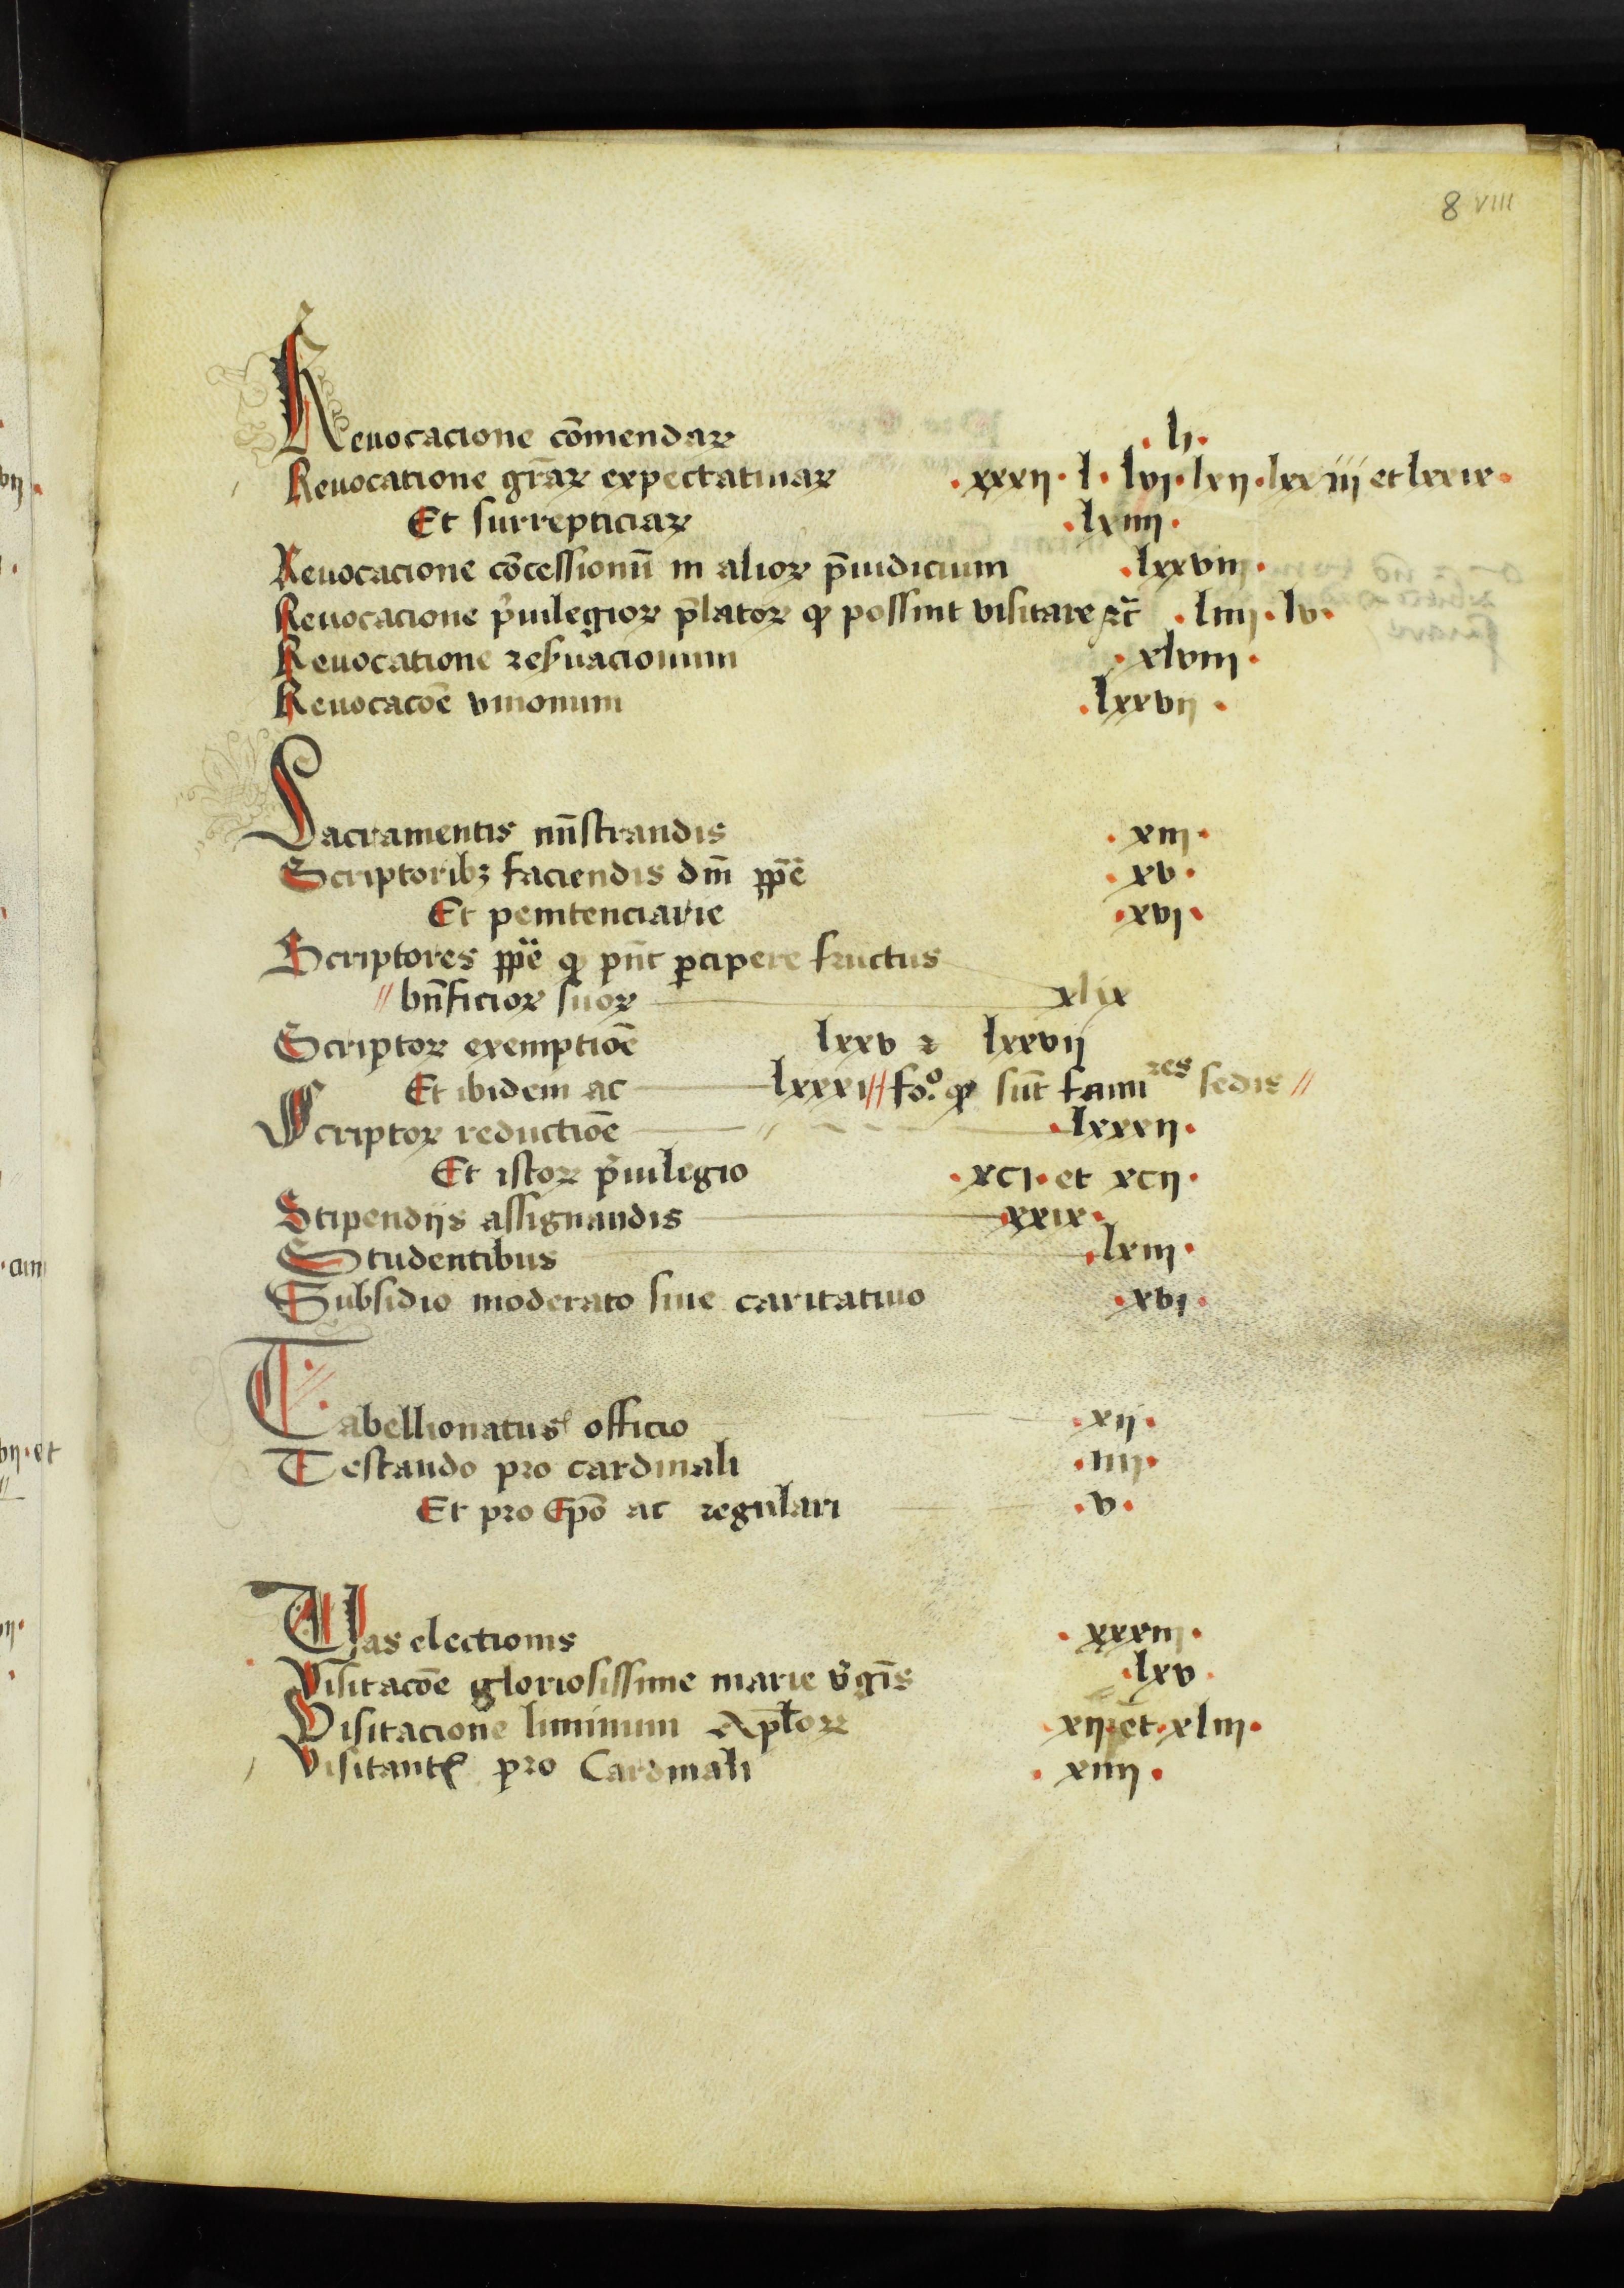 8 VIII
Reuocacione cōmendaꝝ .lj.
Reuocatione grāꝝ expectatiuaꝝ .xxxij.l.lvj.lxij.lxxiij et lxxix.
Et surrepticiaꝝ .lxiiij.
Reuocacione cōcessionū in alioꝝ p̄iudicium .lxxviij.
Reuocacione p̄uilegioꝝ p̄latoꝝ ꝙ possint visitare ꝛc̄ .liiij.lv.
Reuocatione reẜuacionum .xlviij.
Reuocacōe vnionum .lxxvij.
Sacramentis mīstrandis .xiij.
Scriptoribꝫ faciendis dm̄ pp̄e .xv.
Et penitenciarie .xvj.
Scriptores pp̄e ꝙ pn̄t ꝑcipere fructus
// bn̄ficioꝝ suoꝝ xlix
Scriptoꝝ exemptiōe lxxv ꝛ lxxvij
Et ibidem ac lxxxi // fo.º ꝙ sūt famires sedis //
Scriptoꝝ reductiōe .lxxxij.
Et istoꝝ p̄uilegio .xcj. et xcij.
Stipendijs assignandis .xxix.
Studentibus .lxiij.
Subsidio moderato siue caritatiuo .xvj.
Tabellionatus officio .xij.
Testando pro cardinali .iiij.
Et pro Ep̄o ac regulari .v.
Vas electionis .xxxiij.
Visitacōe gloriosissime marie v̓gīs .lxv.
Visitacione liminum Apl̄oꝝ xij. et .xliij.
Visitantꝭ pro Cardinali .xiiij.